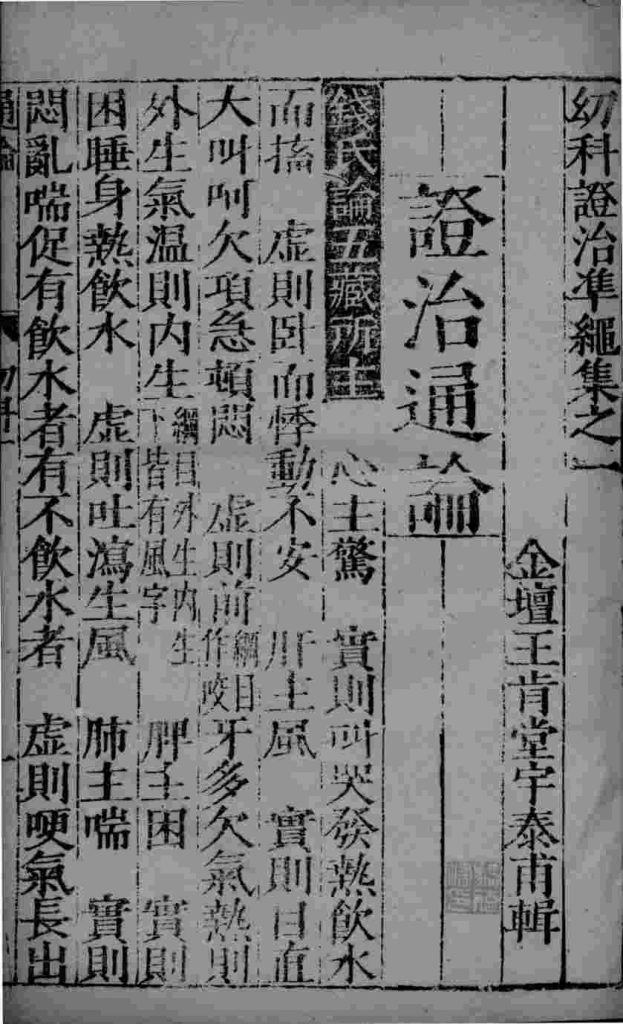 幼科證治準繩集之一
金壇王肯堂宇泰甫輯
證治通論
錢氏論五臟所主 心主驚 實則叫哭發熱飲水
而搐 虛則卧而悸動不安 肝主風 實則目直
大叫呵欠項急頓悶 虛則前綱目作咬牙多欠氣熱則
外生氣温則内生綱目外生内生下皆有風字 脾主困 實則
困睡身熱飲水 虛則吐瀉生風 肺主喘 實則
悶亂喘促有飲水者有不飲水者 虛則哽氣長出
通論
幼科一
一